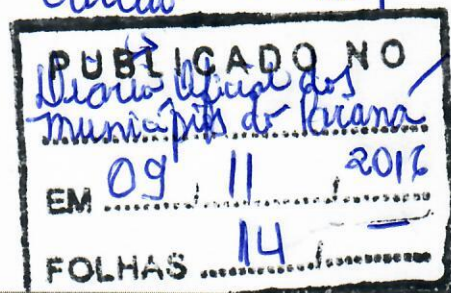 PUBLICADO NO
Diário Oficial dos
Municípios do Paraná
EM 09 / 11 /
FOLHAS 14 / —